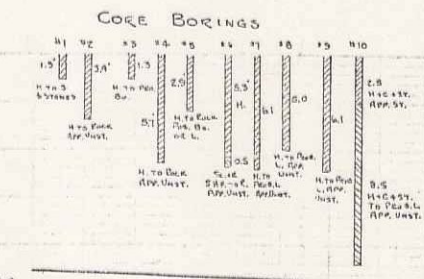 CORE BORINGS
#1 #2 #3 #4 #5 #6 #7 #8 #9 #10
1.5'
H TO S
& STONES
3.4'
H TO ROCK
APP. UNST.
1.3
H TO PRO.
BO.
5.7
H. TO ROCK
APP. UNST.
2.9
H. TO ROCK
POS. BO.
OR L.
5.3'
H.
0.5
6.1
H. TO
PROB. L
APP. UNST.
5.0
H. TO PROB.
L, APP.
UNST.
6.1
H. TO PROB
L, APP.
UNST.
2.5
H+C+ST.
APP. ST.
8.5
H+C+ST.
TO PROB. L
APP. UNST.